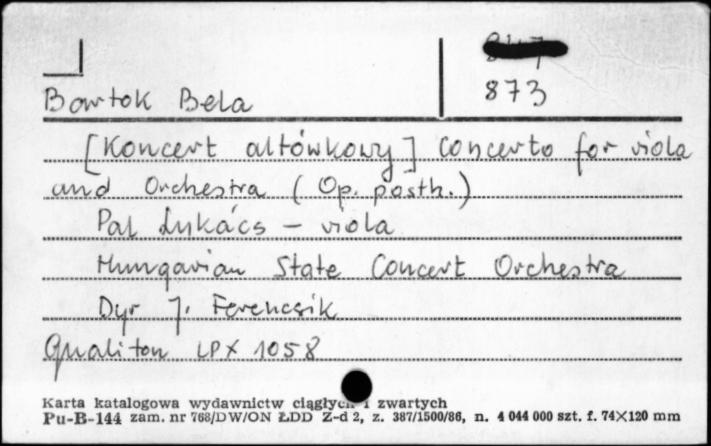 873
Bartok Bela
[Koncert altówkowy] Concerto for viola
and Orchestra (Op. posth.)
Pal Lukács – viola
Hungarian State Concert Orchestra
Dyr J. Ferencsik
Qualiton LPX 1058
Karta katalogowa wydawnictw ciągłych i zwartych
Pu-B-144 zam. nr 768/DW/ON ŁDD Z-d 2, z. 387/1500/86, n. 4 044 000 szt. f. 74×120 mm